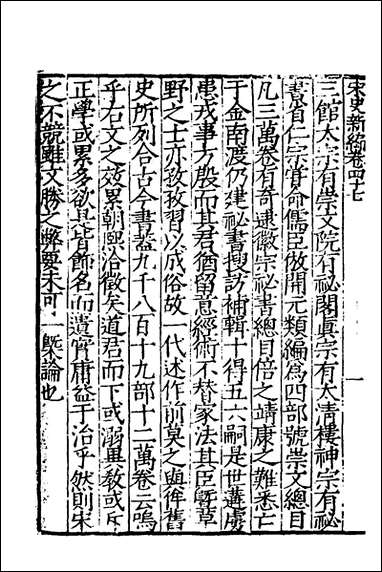 宋史新編卷四十七
一
三館太宗有崇文院有祕閣眞宗有太清樓神宗有祕
書省仁宗實命儒臣倣開元類編爲四部號崇文總目
凡三萬卷有奇逮徽宗祕書總目倍之靖康之難悉亡
于金南渡仍建祕書搜訪補輯十得五六嗣是世遘虜
患戎事方殷而其君猶留意經術不替家法其臣曁草
野之士亦孜孜習以成俗故一代述作前莫之與侔舊
史所列合古今書蓋九千八百十九部十二萬卷云嗚
乎右文之效累朝熙洽徵矣道君而下或溺異敎或斥
正學或累多欲具皆飾名而遺實庸益于治乎然則宋
之不競雖文勝之弊要未可一槩論也